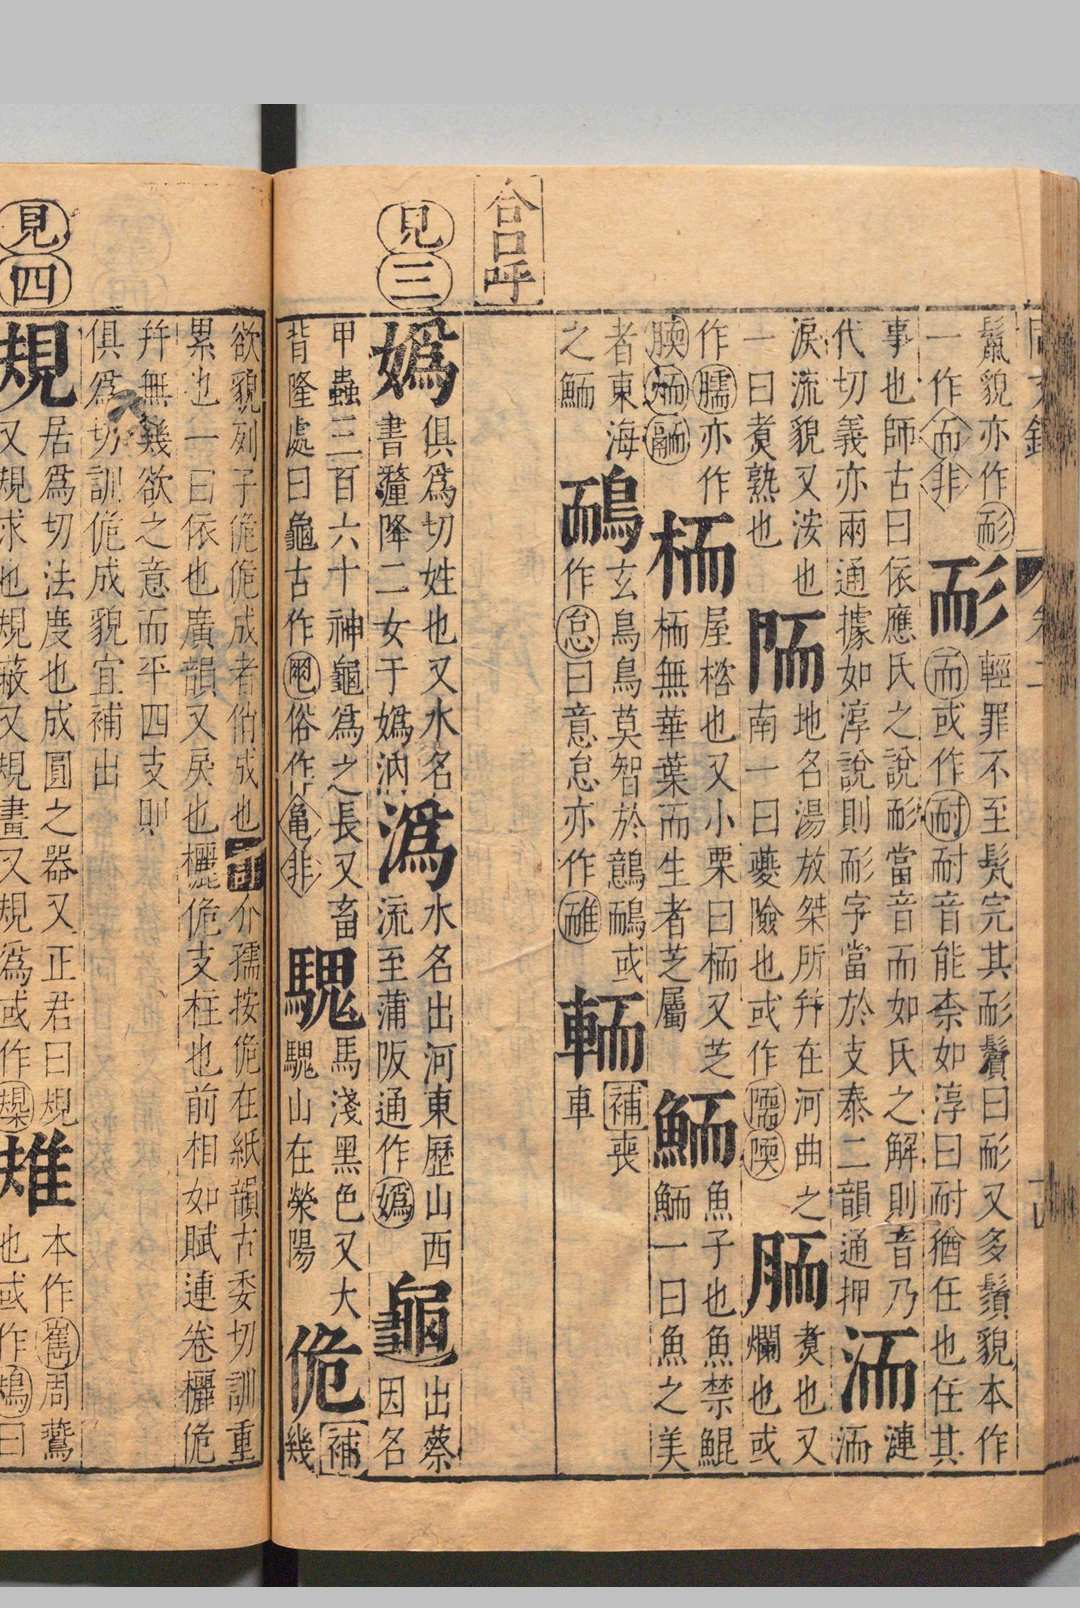 鬚貌亦作耏
一作而非
耏
輕罪不至髡完其耏鬢曰耏又多鬚貌本作
而或作耐耐音能柰如淳曰耐猶任也任其
事也師古曰依應氏之說耏當音而如氏之解則音乃
代切義亦兩通據如淳說則耏字當於支泰二韻通押
洏
漣洏
涙流貌又洝也
一曰煑熟也
陑
地名湯放桀所幷在河曲之
南一曰夔險也或作隭陾
胹
煑也又
爛也或
作臑亦作
腝㶫䎡
栭
屋榰也又小栗曰栭又芝
栭無華葉而生者芝屬
鮞
魚子也魚禁鯤
鮞一曰魚之美
者東海
之鮞
鴯
玄鳥鳥莫智於鷾鴯或
作怠曰意怠亦作
輀
補喪
車
合口呼
見三
嬀
俱爲切姓也又水名
書釐降二女于嬀汭
潙
水名出河東歷山西
流至蒲阪通作嬀
龜
出蔡
因名
甲蟲三百六十神龜爲之長又畜
背隆處曰龜古作俗作龜非
騩
馬淺黑色又大
騩山在榮陽
佹
補
幾
欲貌列子佹佹成者俏成也
介孺按佹在紙韻古委切訓重
累也一曰依也廣韻又戾也欐佹支柱也前相如賦連卷欐佹
幷無幾欲之意而平四支則
俱爲切訓佹成貌宜補出
見四
規
居爲切法度也成圓之器又正君曰規
又規求也規蔽又規畫又規爲或作
雉
本作巂周鷰
也或作鳺曰